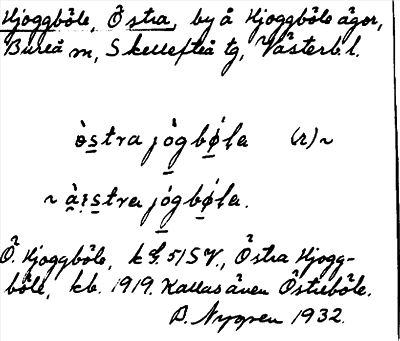 Hjoggböle, Östra, by å Hjoggböle ägor,
Bureå sn, Skellefteå tg, Västerb. l.
òstra jògbǿla (r)~
~ àistra jógbǿla.
Ö. Hjoggböle, 51 SV., Östra Hjogg-
böle, kb. 1919. Kallas även Östreböle.
B. Nygren 1932.